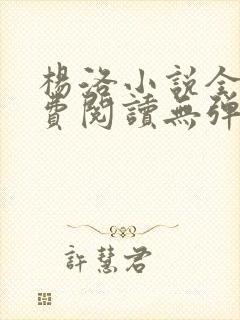 楊洛小說全
費閱讀無彈
許慧君